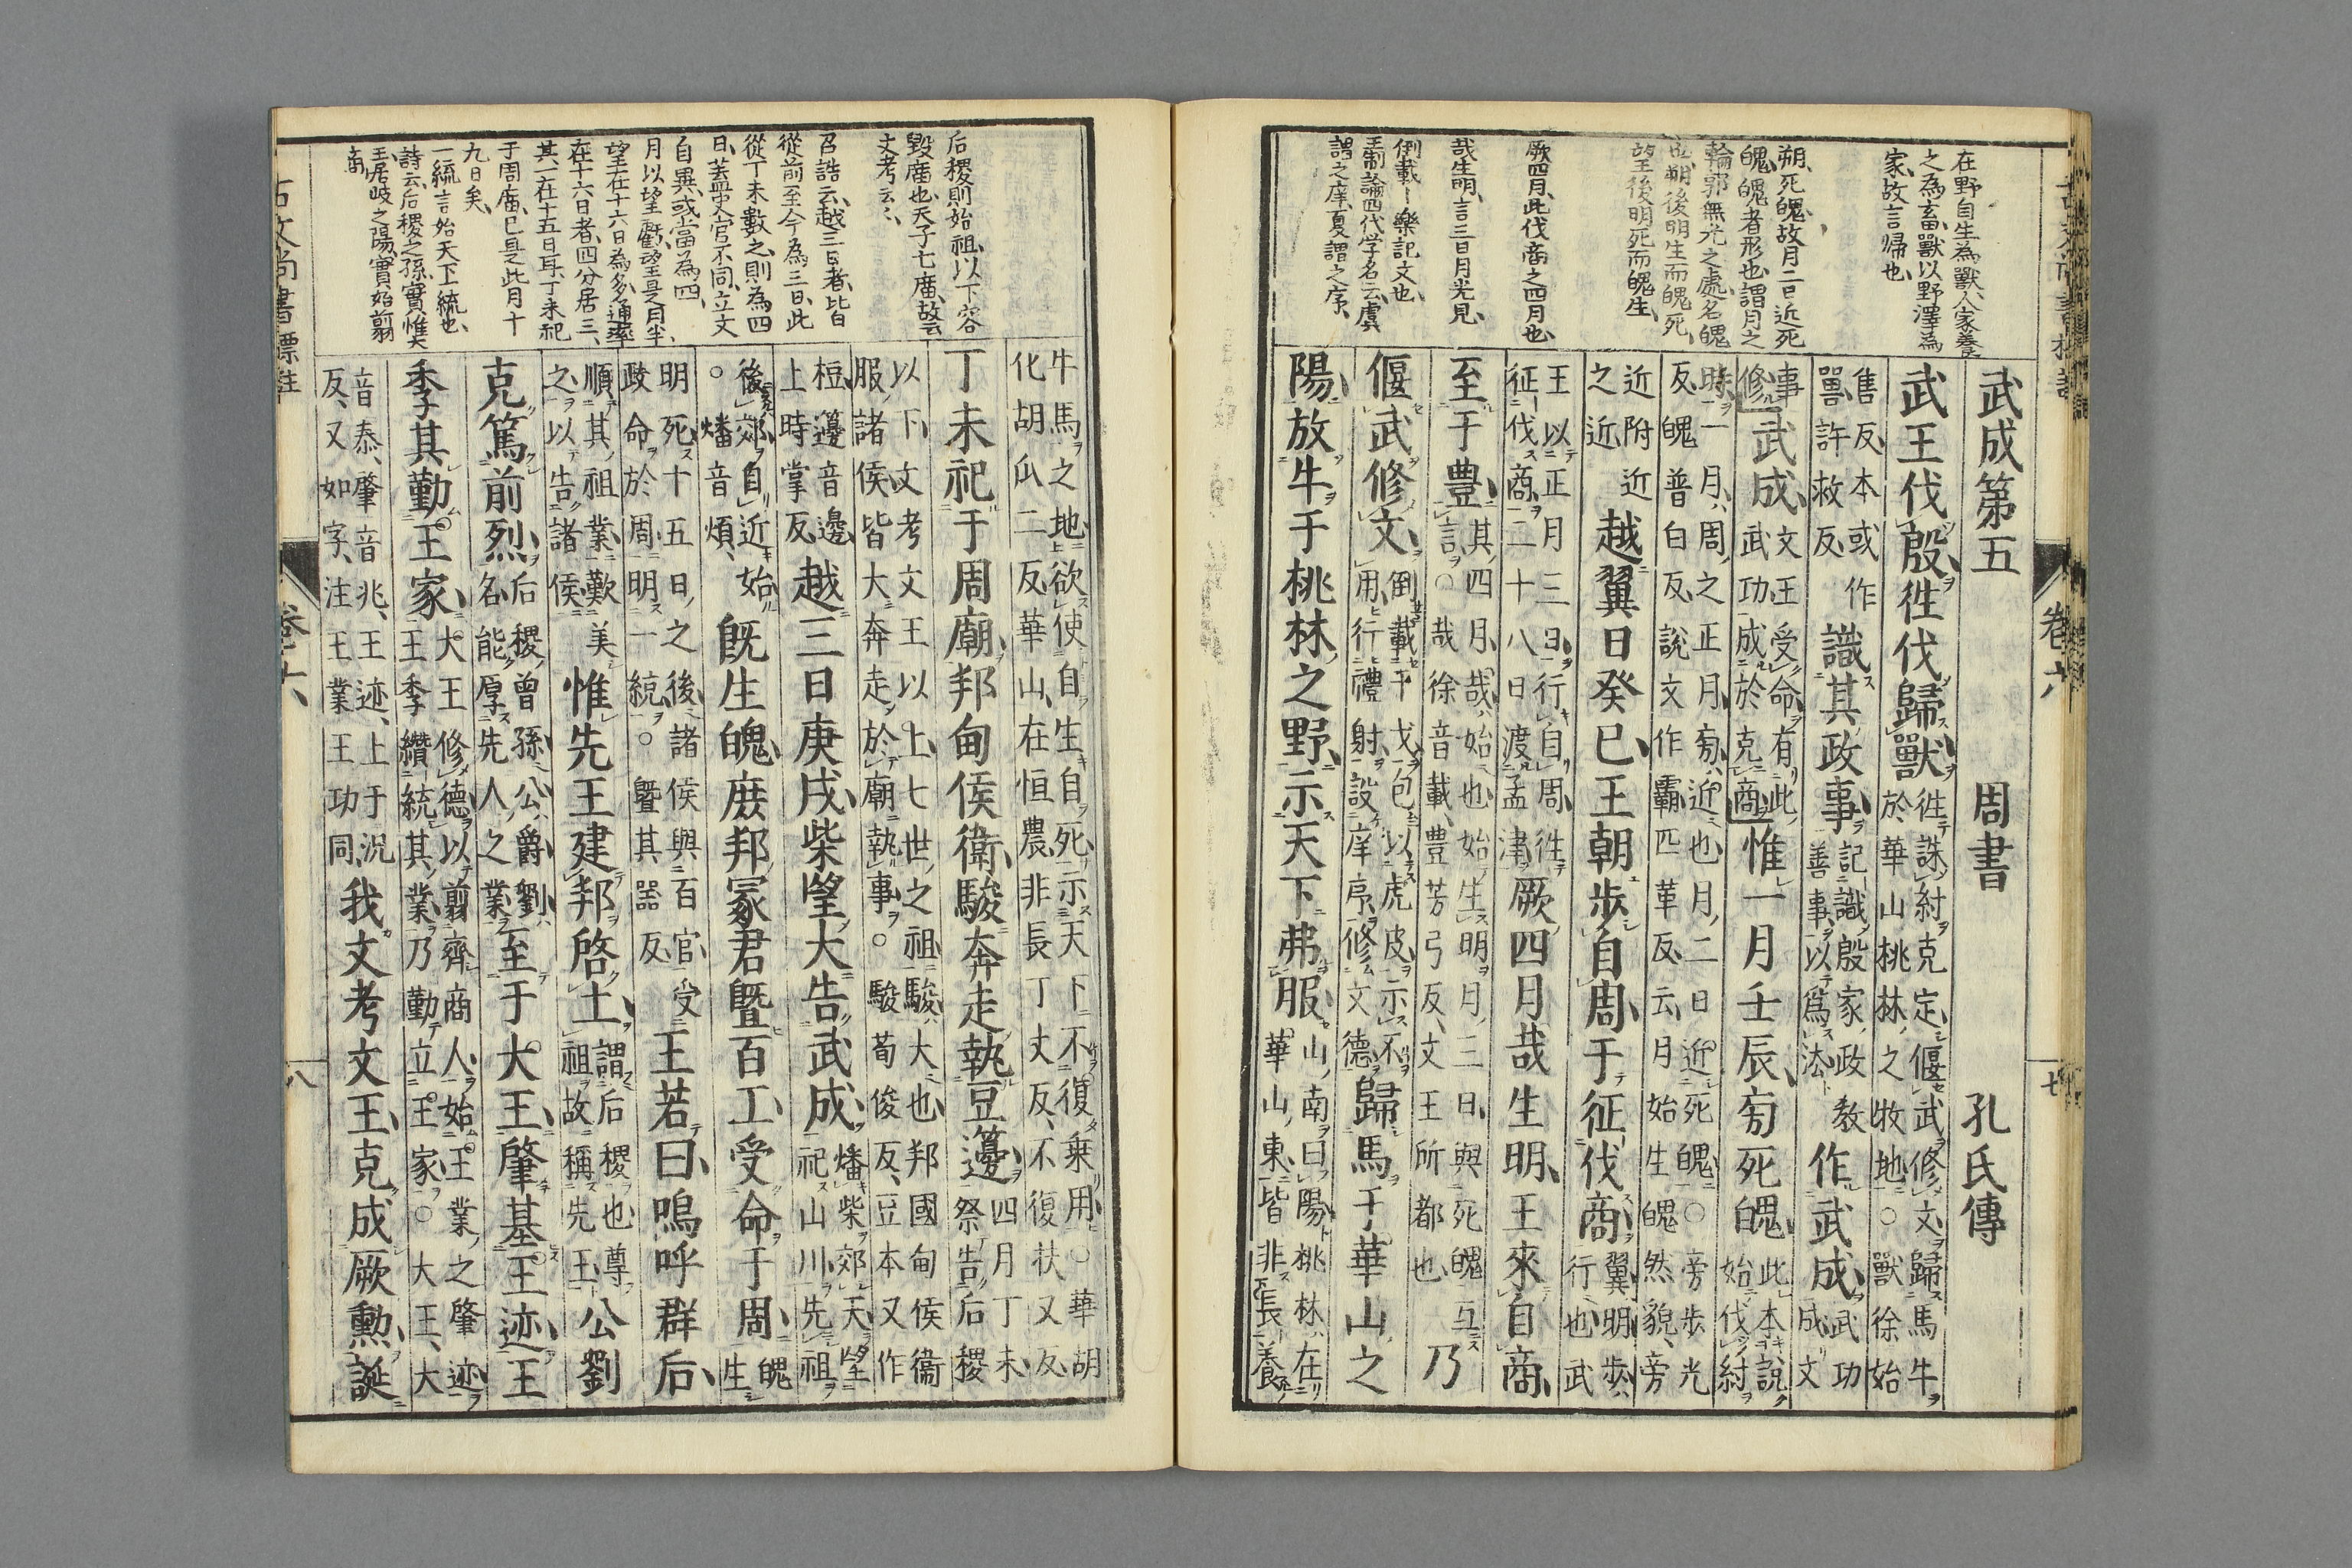 古文尚書標註
卷六
七
在野自生為獸人家養
之為畜獸以野澤為
家故言歸也
朔死魄故月二日近死
魄魄者形也謂月之
輪郭無光之處名魄
也朔後明生而魄死
望後明死而魄生
厥四月此伐商之四月也
哉生明言三日月光見
倒載一樂記文也
王制論四代学名云虞
謂之庠夏謂之序
武成第五 周書 孔氏傳
武王伐殷徃伐歸獸 徃誅紂克定偃武修文歸馬牛
於華山桃林之牧地○獸徐始
售反本或作
嘼許救反 識其政事 記識殷家政教
善事以爲法 作武成 武功
成文
事
修 武成 文王受命有此
武功成於克商 惟一月壬辰㫄死魄 此本說
始伐紂
時一月周之正月㫄近也月二日近死魄○旁步光
反魄普白反說文作霸匹革反云月始生魄然貌旁
近附近
之近 越翼日癸巳王朝步自周于征伐商 翼明步
行也武
王以正月三日行自周徃
征伐商二十八日渡孟津 厥四月哉生明王來自商
至于豊 其四月哉始也始生明月三日與死魄互
言○哉徐音載豊芳弓反文王所都也 乃
偃武修文 倒載干戈包以虎皮示不
用行禮射設庠序修文德 歸馬于華山之
陽放牛于桃林之野示天下弗服 山南曰陽桃林在
華山東皆非長養
后稷則始祖以下容
毀廟也天子七廟故云
文考云々
召誥云越三日者皆自
從前至今為三日此
從丁未數之則為四
日蓋史官不同立文
自異或當為四
月以望虧望是月半
望在十六日為多通率
在十六日者四分居三
其一在十五日耳丁未祀
于周廟已是此月十
九日矣
一統言始天下統也
詩云后稷之孫實惟大
王居岐之陽實始翦
商
牛馬之地欲使自生自死示天下不復乗用○華胡
化胡瓜二反華山在恒農非長丁丈反不復扶又反
丁未祀于周廟邦甸侯衛駿奔走執豆籩 四月丁未
祭告后稷
以下文考文王以上七世之祖駿大也邦國甸侯衞
服諸侯皆大奔走於廟執事○駿荀俊反豆本又作
梪籩音邊
上時掌反 越三日庚戌柴望大告武成 燔柴郊天望
祀山川先祖
後郊自近始
○燔音煩 既生魄庶邦冢君曁百工受命于周 魄
生
明死十五日之後諸侯與百官受
政命於周明一統○曁其器反 王若曰嗚呼群后
順其祖業歎美
之以告諸侯 惟先王建邦啓土 謂后稷也尊
祖故稱先王 公劉
克篤前烈 后稷曾孫公爵劉
名能厚先人之業 至于大王肇基王迹王
季其勤王家 大王修德以翦齊商人始王業之肇迹
王季纘統其業乃勤立王家○大王大
音泰肇音兆王迹上于況
反又如字注王業王功同 我文考文王克成厥勳誕
古文尚書標註
卷六
八